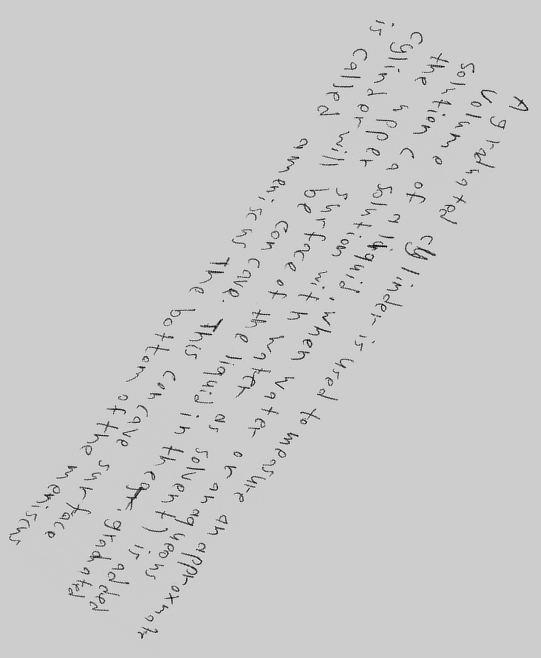 A graduated cylinder is used to measure an approxmate
volume of a liquid, when water or an aqueous
solution (a solution with water as solvent) is added
the upper surface of the liquid in the graduated
cylinder will be concave. This concave surface
is called a meniscus The bottom of the meniscus